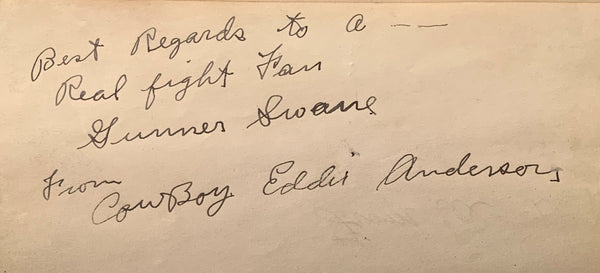 Best Regards to a ——
Real fight Fan
Gunner Swane
From
CowBoy Eddie Anderson